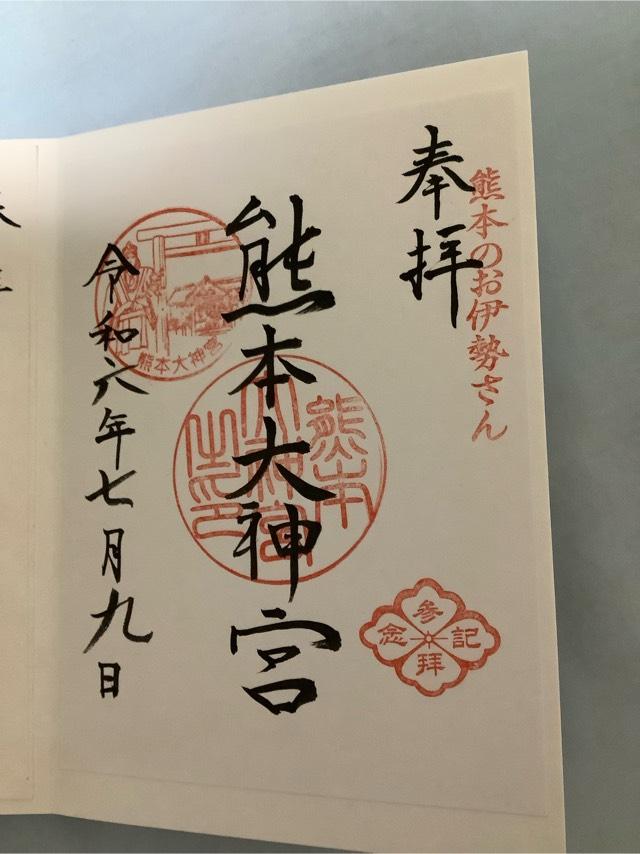 熊本のお伊勢さん
奉拝
熊本大神宮
熊本
大神宮
之印
熊本大神宮
令和六年七月九日
参拝
記念